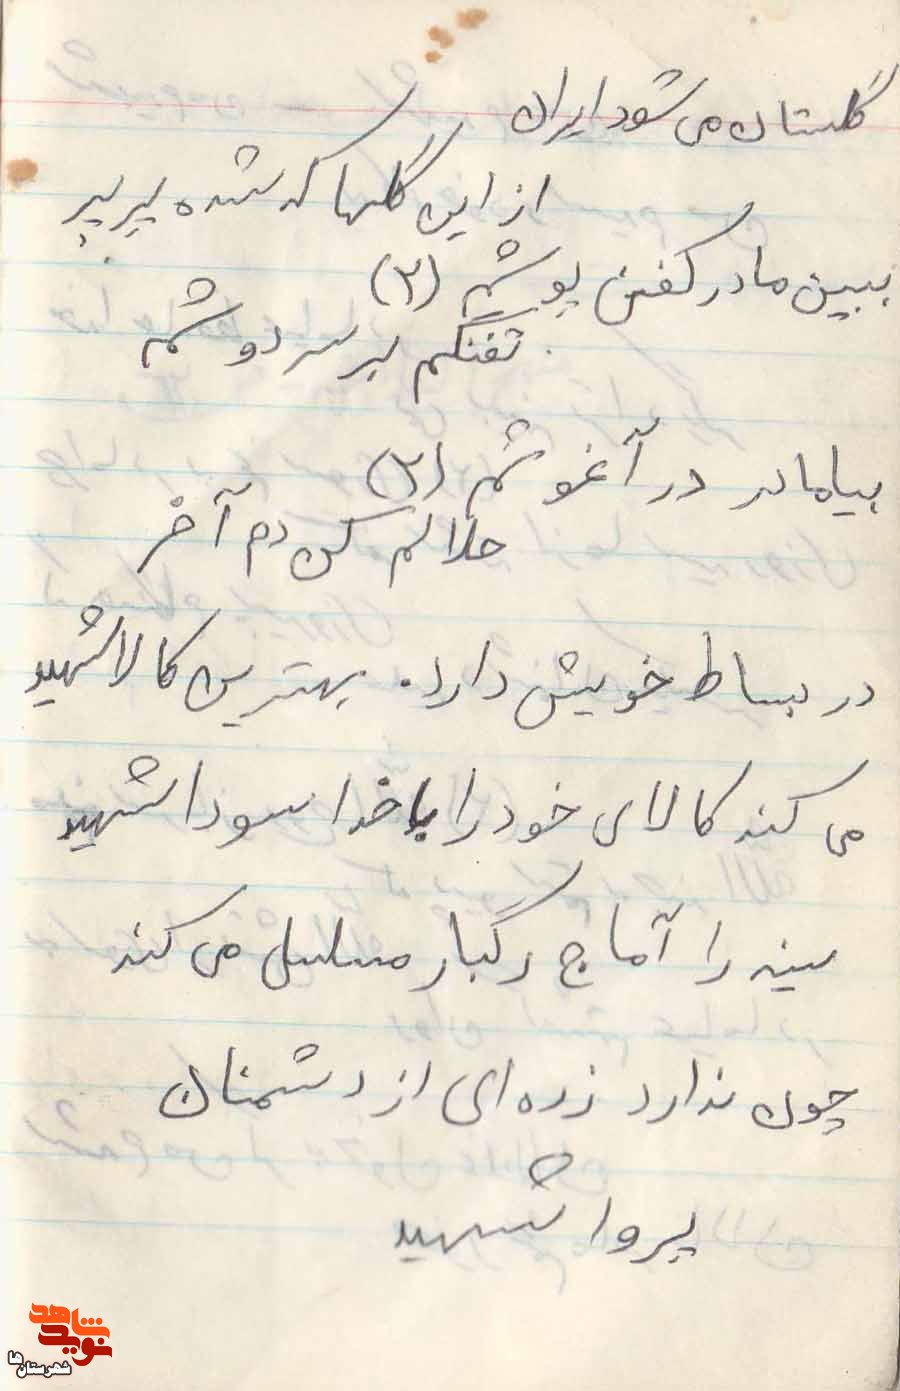 گلستان می شود ایران
از این گلها که شده پرپر
ببین مادر کفن پوشم (۲)
تفنگم بر سر دوشم
بیا مادر در آغوشم (۲)
حلالم کن دم آخر
در بساط خویش دارد. بهترین کالا شهید
می کند کالای خود را با خدا سودا شهید
سینه را آماج رگبار مسلسل می کند
چون ندارد زره ای از دشمنان
پروا شهید
نوید شاهد
شهرستان‌ها